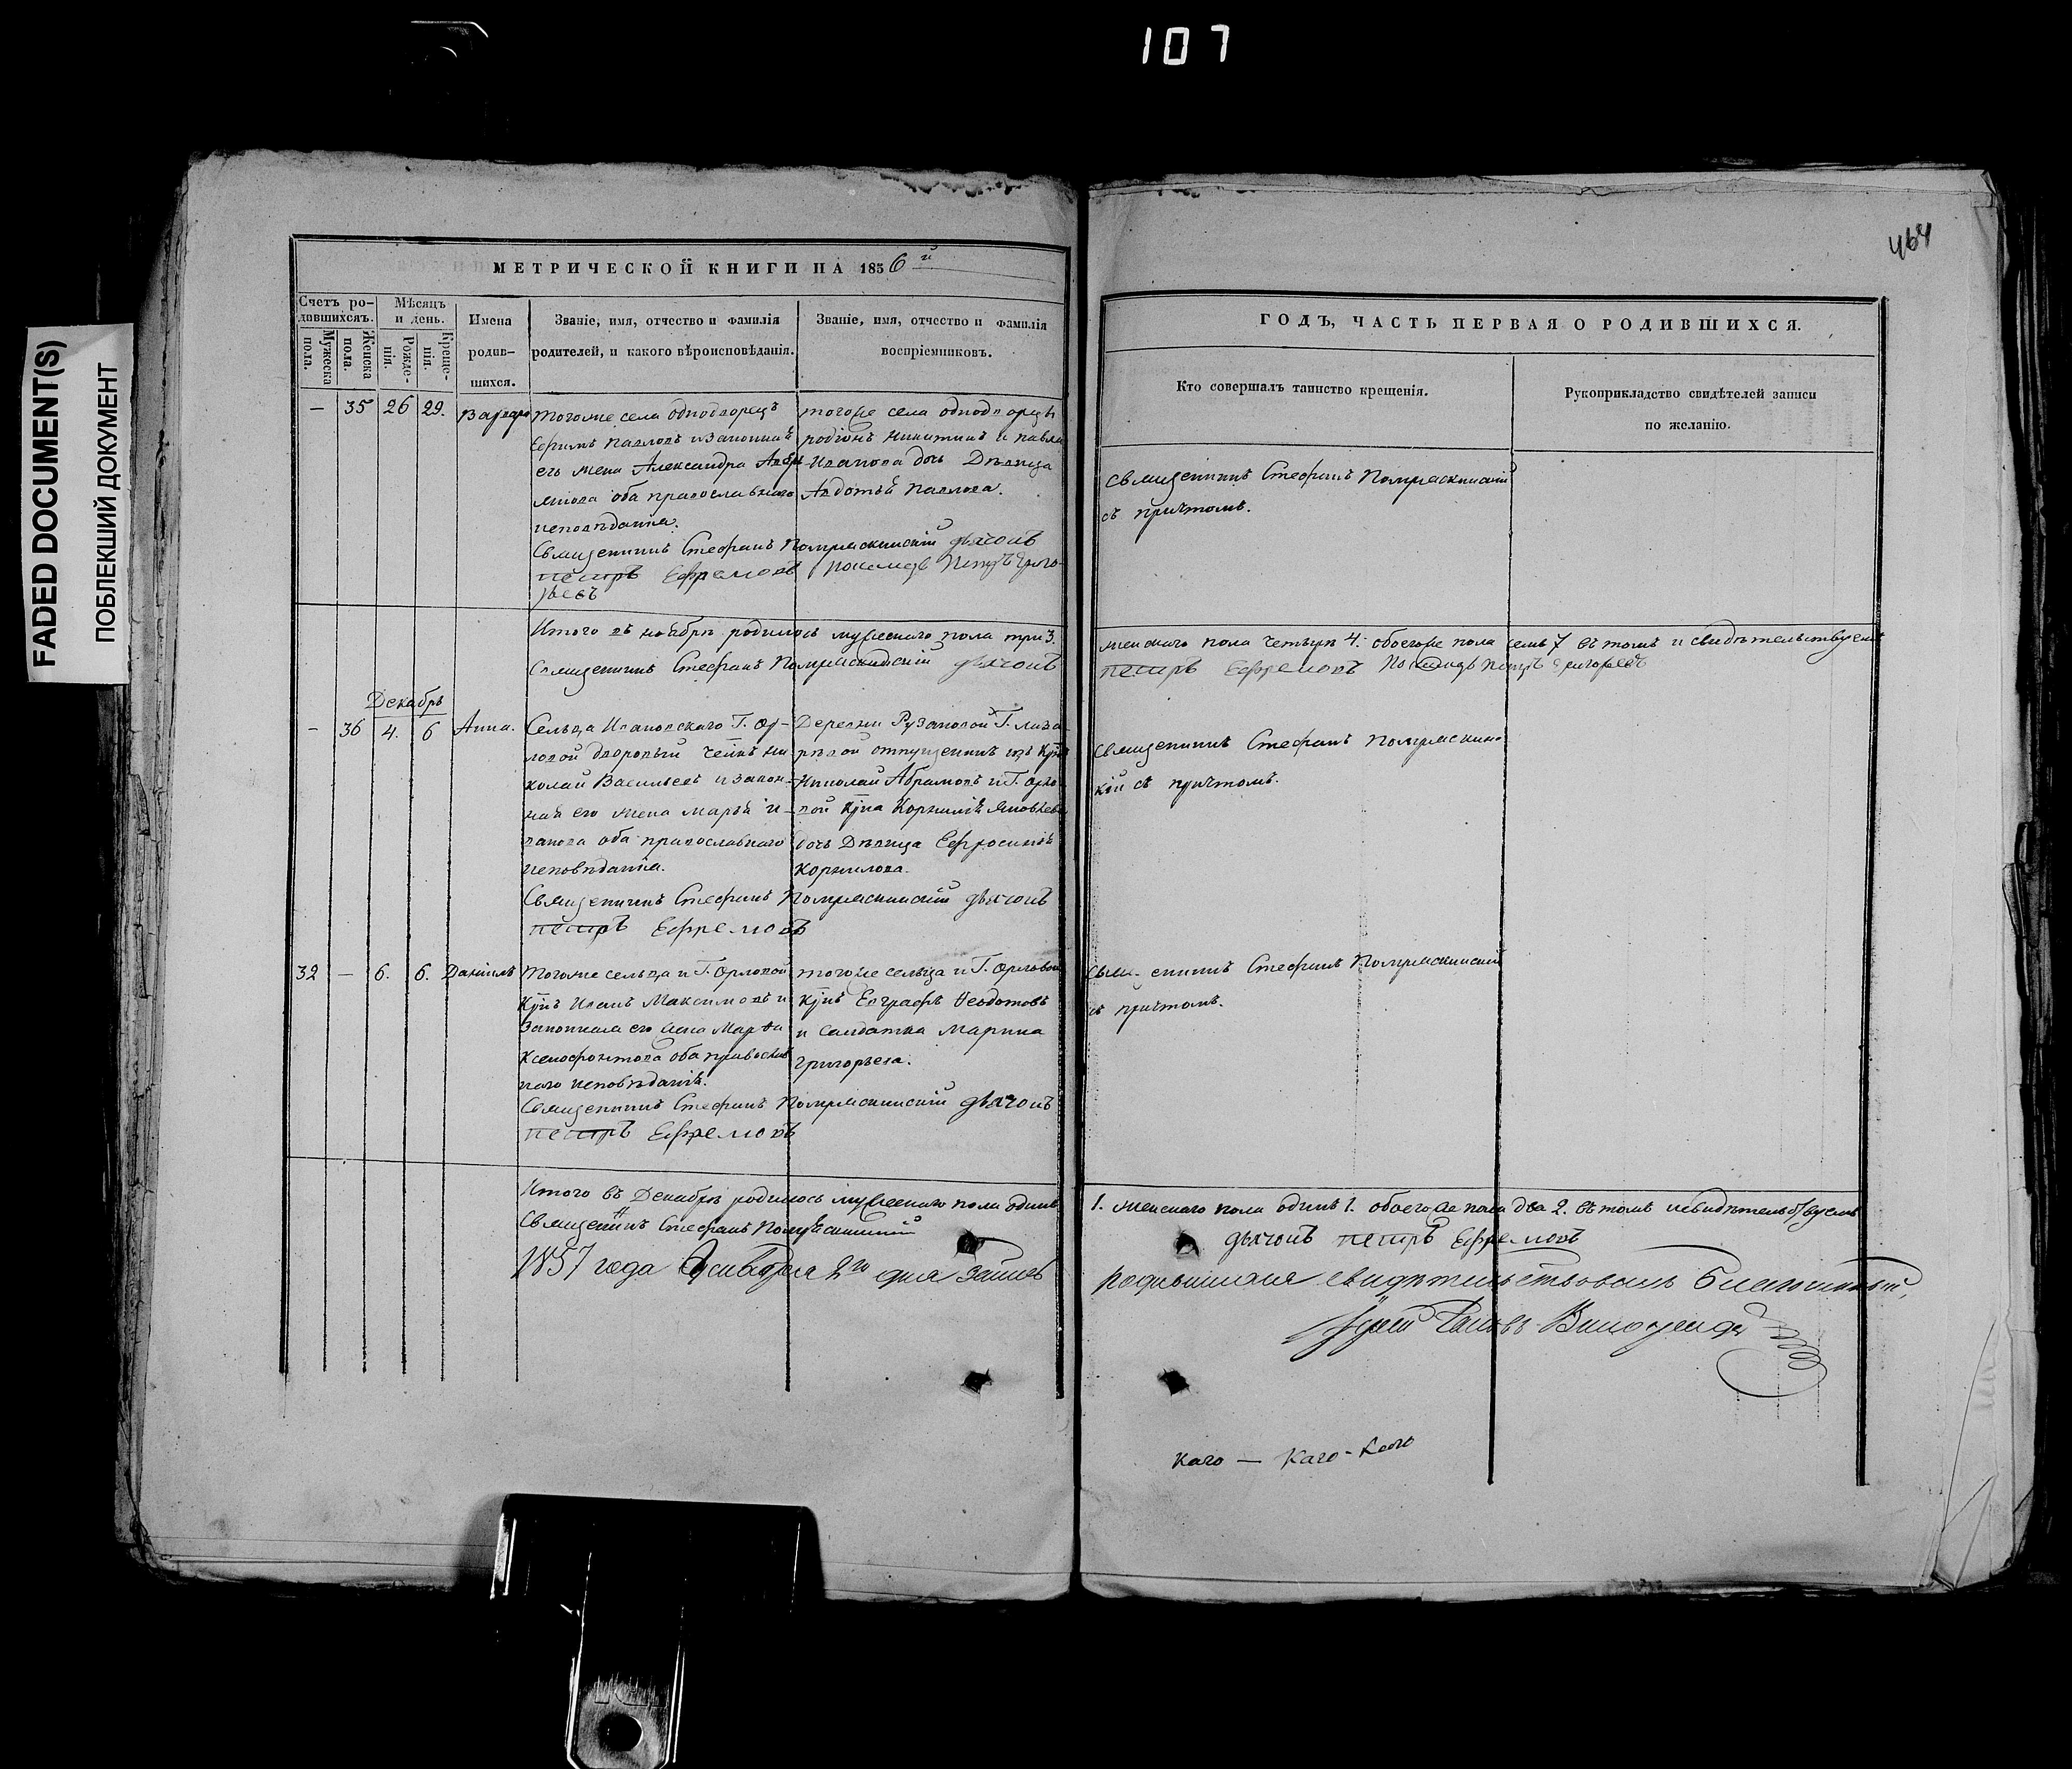 107
FADED DOCUMENT(S)
ПОБЛЕКШИЙ ДОКУМЕНТ
464
МЕТРИЧЕСКОЙ КНИГИ НА 1856й
Счетъ ро-
дившихся.
Мужеска
пола.
Женска
пола.
Мѣсяцъ
и день.
Рожде-
нія.
Креще-
нія.
Имена
родив-
шихся.
Званіе, имя, отчество и фамилія
родителей, и какого вѣроисповѣданія.
Званіе, имя, отчество и фамилія
воспріемниковъ.
ГОДЪ, ЧАСТЬ ПЕРВАЯ О РОДИВШИХСЯ.
Кто совершалъ таинство крещенія.
Рукоприкладство свидѣтелей записи
по желанію.
— 35 26 29.
тогоже села однодворецъ
Ефимъ Павловъ и законная
его жена Александра
оба православнаго
исповѣданія.
тогоже села однодворцы
Родіонъ Никитинъ и
Иванова дочь Дѣвица
Авдотья Павлова.
Священникъ Стефанъ дьячокъ
петръ Ефремовъ Петръ Григо-
рьевъ
Священникъ Стефанъ
съ причтомъ.
Итого въ ноябрѣ родилось мужескаго пола три 3.
женскаго пола четыре 4. обоегоже пола семь 7 въ томъ и свидѣтельствуемъ
Священникъ Стефанъ дьячокъ
петръ Ефремовъ Петръ Григорьевъ
Декабрь
— 36 4. 6 Анна.
Сельца Ивановскаго Г. Ор-
ловой дворовый Ни-
колай Васильевъ и закон-
ная его жена Марья И-
ванова оба православнаго
исповѣданія.
Деревни Рузановой Г.
отпущенникъ изъ
Николай Абрамовъ и Г. Орло-
вой Корнилія Яковлева
дочь Дѣвица Ефросинія
Корнилова.
Священникъ Стефанъ дьячокъ
петръ Ефремовъ
Священникъ Стефанъ
кій съ причтомъ.
32 — 6. 6. Даніилъ
Тогоже сельца и Г. Орловой
Иванъ Максимовъ и
законная его жена Марфа
Ксенофонтова оба православ
наго исповѣданія.
тогоже сельца и Г. Орловой
Евграфъ Ѳеодотовъ
и Салдатка Марина
Григорьева.
Священникъ Стефанъ дьячокъ
петръ Ефремовъ
Стефанъ
съ причтомъ.
Итого въ Декабрѣ родилось мужескаго пола одинъ
1. женскаго пола одинъ 1. обоегоже пола два 2. въ томъ и свидѣтельствуемъ
Священникъ Стефанъ
дьячокъ петръ Ефремовъ
1857 года Генваря 2го дня запись
родившихся свидѣтельствовалъ Благочинный,
Іерей
како — како - како